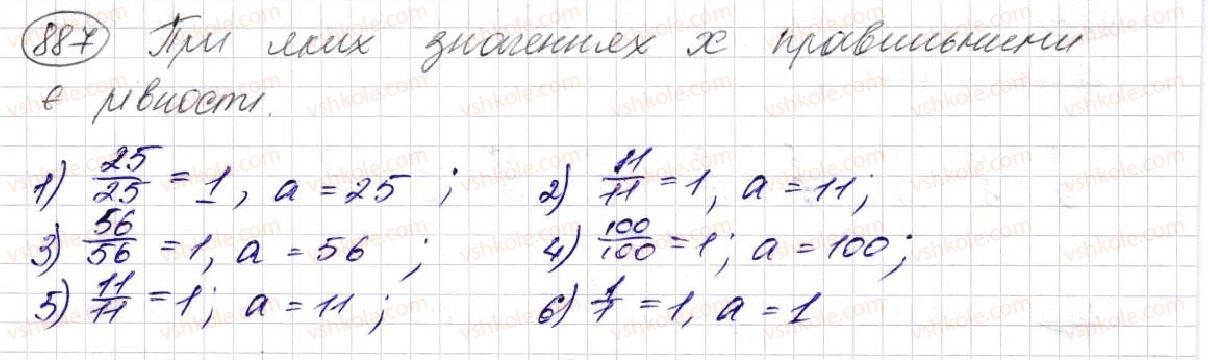 887 При яких значеннях x правильними
є рівності.
1) 25/25 = 1, a = 25 ; 2) 11/11 = 1, a = 11;
3) 56/56 = 1, a = 56 ; 4) 100/100 = 1; a = 100;
5) 11/11 = 1; a = 11 ; 6) 1/1 = 1, a = 1